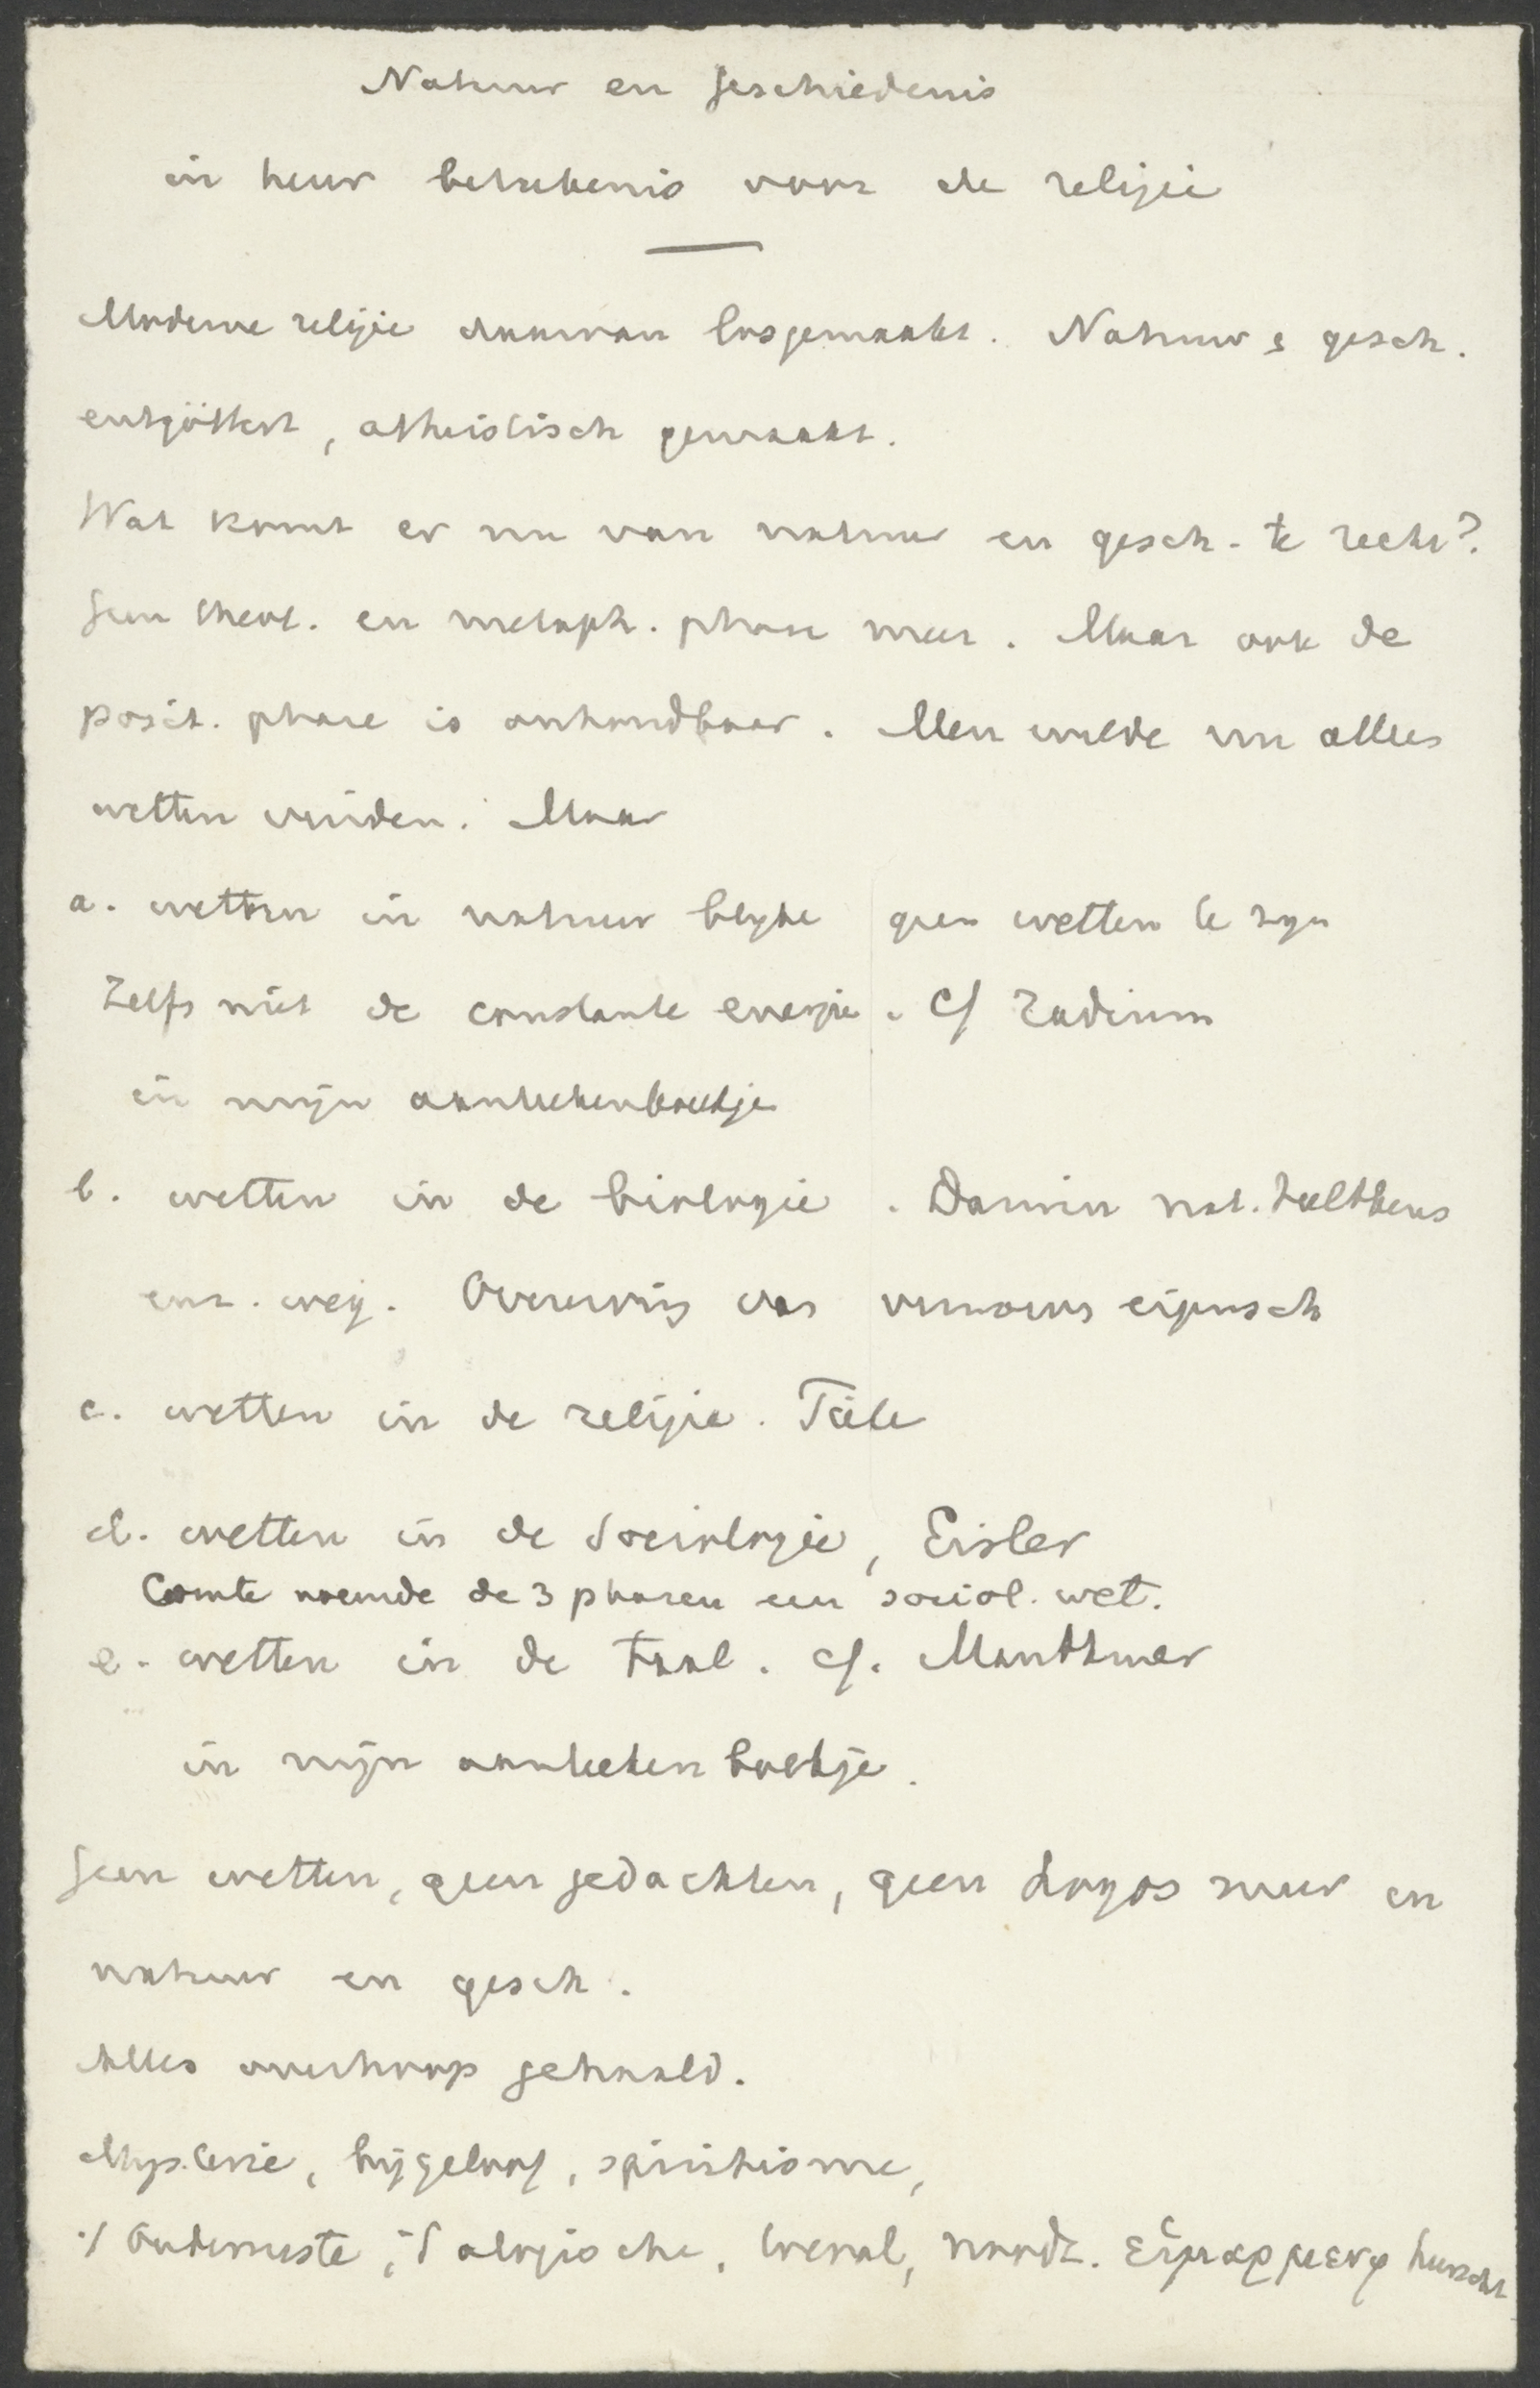 Natuur en geschiedenis
in heur beteekenis voor de religie
Moderne religie daarvan losgemaakt. Natuur & gesch.
entgöttert, atheistisch gemaakt.
Wat komt er nu van natuur en gesch. te recht?
Geen theol. en metaph. phase meer. Maar ook de
posit. phase is onhoudbaar. Men wilde in alles
wetten vinden. Maar
a. wetten in natuur blijken geen wetten te zijn
Zelfs niet de constante energie. Cf radium
in mijn aanteekenboekje
b. wetten in de biologie. Darwin nat. teeltkeus
enz. weg. Overerving van verworv. eigensch
c. wetten in de religie. Tiele
d. wetten in de Sociologie, Eisler
Comte noemde de 3 phasen een sociol. wet.
e. wetten in de taal. cf. Mauthner
in mijn aanteekenboekje.
Geen wetten, geen gedachten, geen Logos meer in
natuur en gesch.
Alles overhoop gehaald.
Mysterie, bijgeloof, spiritisme,
't Onbewuste, 't alogische, toeval, noodz. εἱμαρμενη heerscht